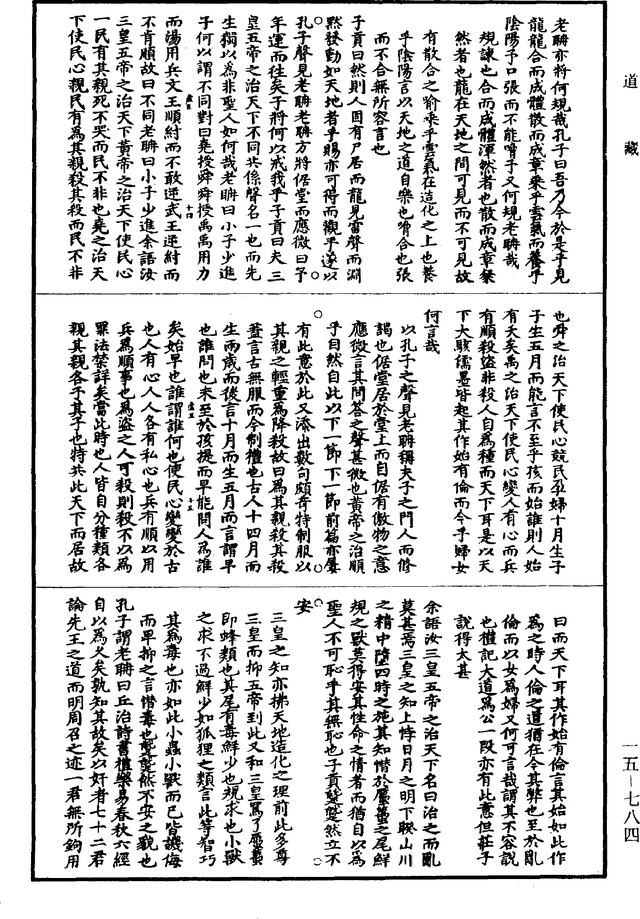 道藏
老聃亦將何規哉孔子曰吾乃今於是乎見
龍龍合而成體散而成章乘乎雲氣而養乎
陰陽予口張而不能嗋予又何規老聃哉
規諫也合而成體渾然者也散而成章粲
然者也龍在天地之間可見而不可見故
有散合之喻乘乎雲氣在造化之上也養
乎陰陽言以天地之道自樂也嗋合也張
而不合無所容言也
子貢曰然則人固有尸居而龍見雷聲而淵
默發動如天地者乎賜亦可得而觀乎遂以
孔子聲見老聃老聃方將倨堂而應微曰予
年運而往矣子將何以戒我乎子貢曰夫三
皇五帝之治天下不同其係聲名一也而先
生獨以為非聖人如何哉老聃曰小子少進
子何以謂不同對曰堯授舜舜授禹禹用力
而湯用兵文王順紂而不敢逆武王逆紂而
不肯順故曰不同老聃曰小子少進余語汝
三皇五帝之治天下黃帝之治天下使民心
一民有其親死不哭而民不非也堯之治天
下使民心親民有為其親殺其殺而民不非
也舜之治天下使民心競民孕婦十月生子
子生五月而能言不至乎孩而始誰則人始
有夭矣禹之治天下使民心變人有心而兵
有順殺盜非殺人自為種而天下耳是以天
下大駭儒墨皆起其作始有倫而今乎婦女
何言哉
以孔子之聲見老聃稱夫子之門人而修
謁也倨堂居於堂上而自倨有傲物之意
應微言其問答之聲甚微也黃帝之治順
乎自然自此以下一節下一節前篇亦屢
有此意於此又添出數句頗奇特制服以
其親之輕重為降殺故曰為其親殺其殺
蓋言古無服而今制禮也古人十四月而
生兩歲而後言十月而生五月而言謂早
也誰問也未至於孩提而早能問人為誰
矣始早也誰謂誰何也使民心變變於古
也人有心人人各有私心也兵有順以用
兵為順事也為盜之人可殺則殺不以為
罪法禁詳矣當此時也人皆自分種類各
親其親各子其子也特共此天下而居故
曰而天下耳其作始有倫言其始如此作
為之時人倫之道猶在今其弊也至於亂
倫而以女為婦又何可言哉謂其不容說
也禮記大道為公一段亦有此意但莊子
說得太甚
余語汝三皇五帝之治天下名曰治之而亂
莫甚焉三皇之知上悖日月之明下睽山川
之精中墮四時之施其知憯於蠣蠆之尾鮮
規之獸莫得安其性命之情者而猶自以為
聖人不可恥乎其無恥也子貢蹵蹵然立不
安
三皇之知亦拂天地造化之理前此多尊
三皇而抑五帝到此又和三皇罵了蠣蠆
即蜂類也其尾有毒鮮少也規求也小獸
之求不過鮮少如狐狸之類言此等智巧
其為毒也亦如此小蟲小獸而已皆譏侮
而卑抑之言憯毒也蹵蹵然不安之貌也
孔子謂老聃曰丘治詩書禮樂易春秋六經
自以為久矣孰知其故矣以奸者七十二君
論先王之道而明周召之迹一君無所鉤用
一五—七八四